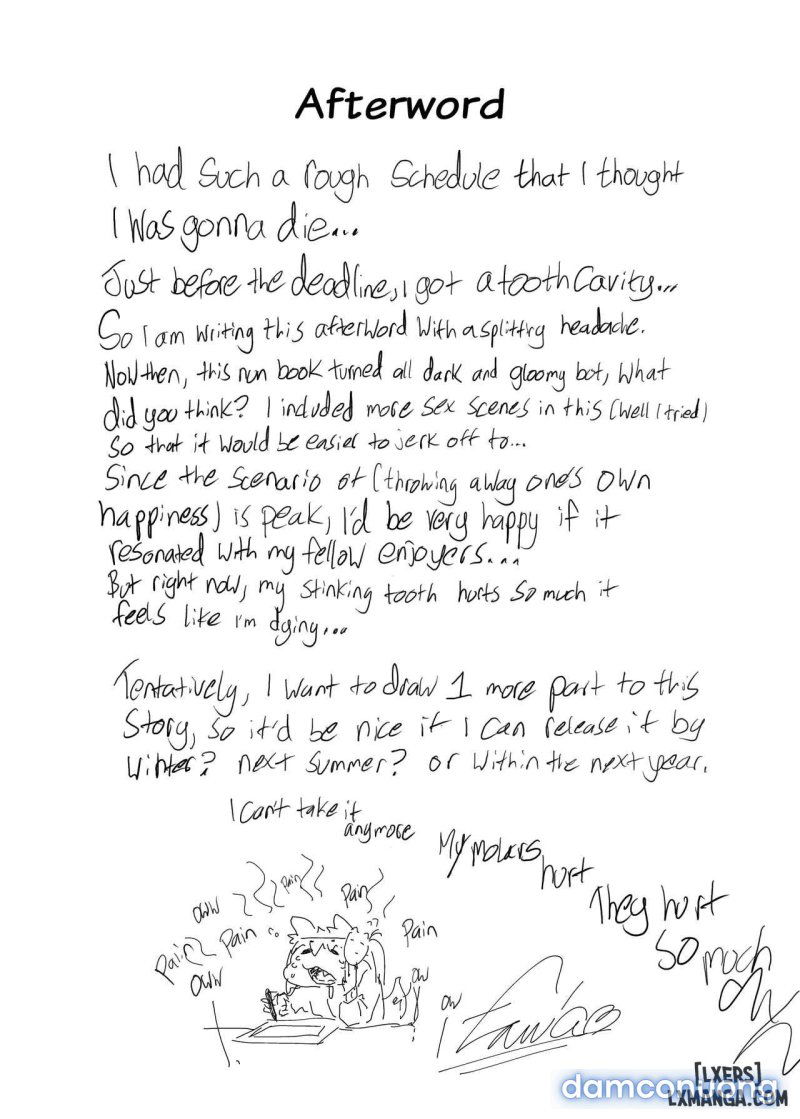 Afterword
I had such a rough schedule that I thought
I was gonna die...
Just before the deadline, I got a tooth cavity...
So I am writing this afterword with a splittry headache.
Now then, this nun book turned all dark and gloomy bot, what
did you think? I included more sex scenes in this (well I tried)
so that it would be easier to jerk off to...
Since the scenario of (throwing away one's own
happiness) is peak, I'd be very happy if it
resonated with my fellow enjoyers...
But right now, my stinking tooth hurts so much it
feels like I'm dying...
Tentatively, I want to draw 1 more part to this
story, so it'd be nice if I can release it by
winter? next summer? or within the next year.
I can't take it
anymore
My molars
hurt
They hurt
so much
Pain
Pain
Pain
Oww
Pain
Pain
Oww
ow
ow
[LXERS]
damconuong
LXMANGA.COM